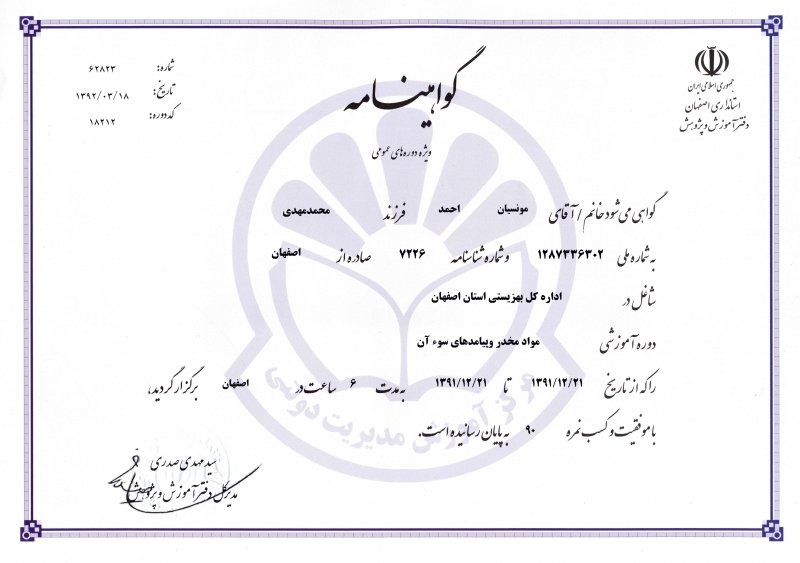 جمهوری اسلامی ایران
استانداری اصفهان
دفتر آموزش و پژوهش
شماره: ۶۲۸۲۳
تاریخ: ۱۳۹۲/۰۳/۱۸
کد دوره: ۱۸۲۱۲
گواهینامه
ویژه دوره های عمومی
گواهی می شود خانم / آقای مونسیان احمد فرزند محمدمهدی
به شماره ملی ۱۲۸۷۳۳۶۳۰۲ و شماره شناسنامه ۷۲۲۶ صادره از اصفهان
شاغل در اداره کل بهزیستی استان اصفهان
دوره آموزشی مواد مخدر وپیامدهای سوء آن
را که از تاریخ ۱۳۹۱/۱۲/۲۱ تا ۱۳۹۱/۱۲/۲۱ به مدت ۶ ساعت در اصفهان برگزار گردید،
با موفقیت و کسب نمره ۹۰ به پایان رسانیده است.
مرکز آموزش مدیریت دولتی
سید مهدی صدری
مدیر کل دفتر آموزش و پژوهش